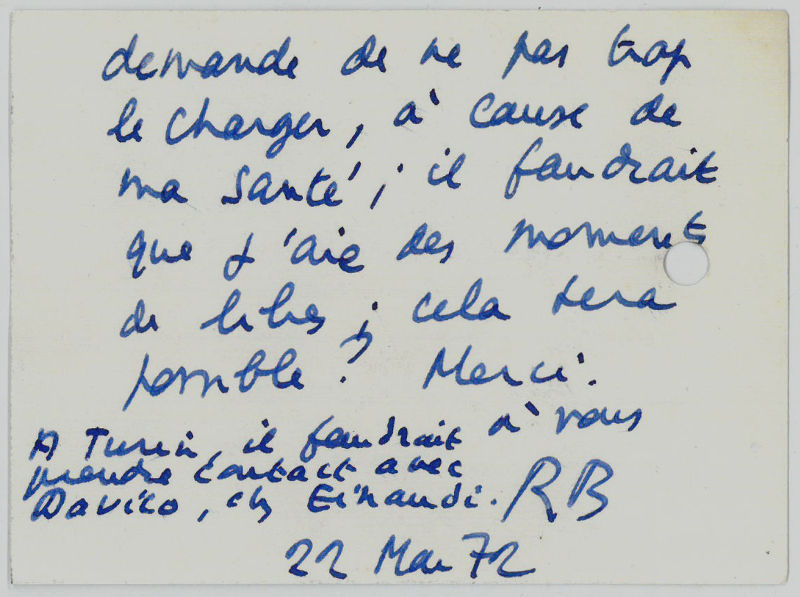 demande de ne pas trop
le charger, à cause de
ma santé ; il faudrait
que j'aie des moments
de libres ; cela sera
possible ? Merci.
à vous
A Turin, il faudrait
prendre contact avec
Davico, ch Einaudi.
RB
22 Mai 72